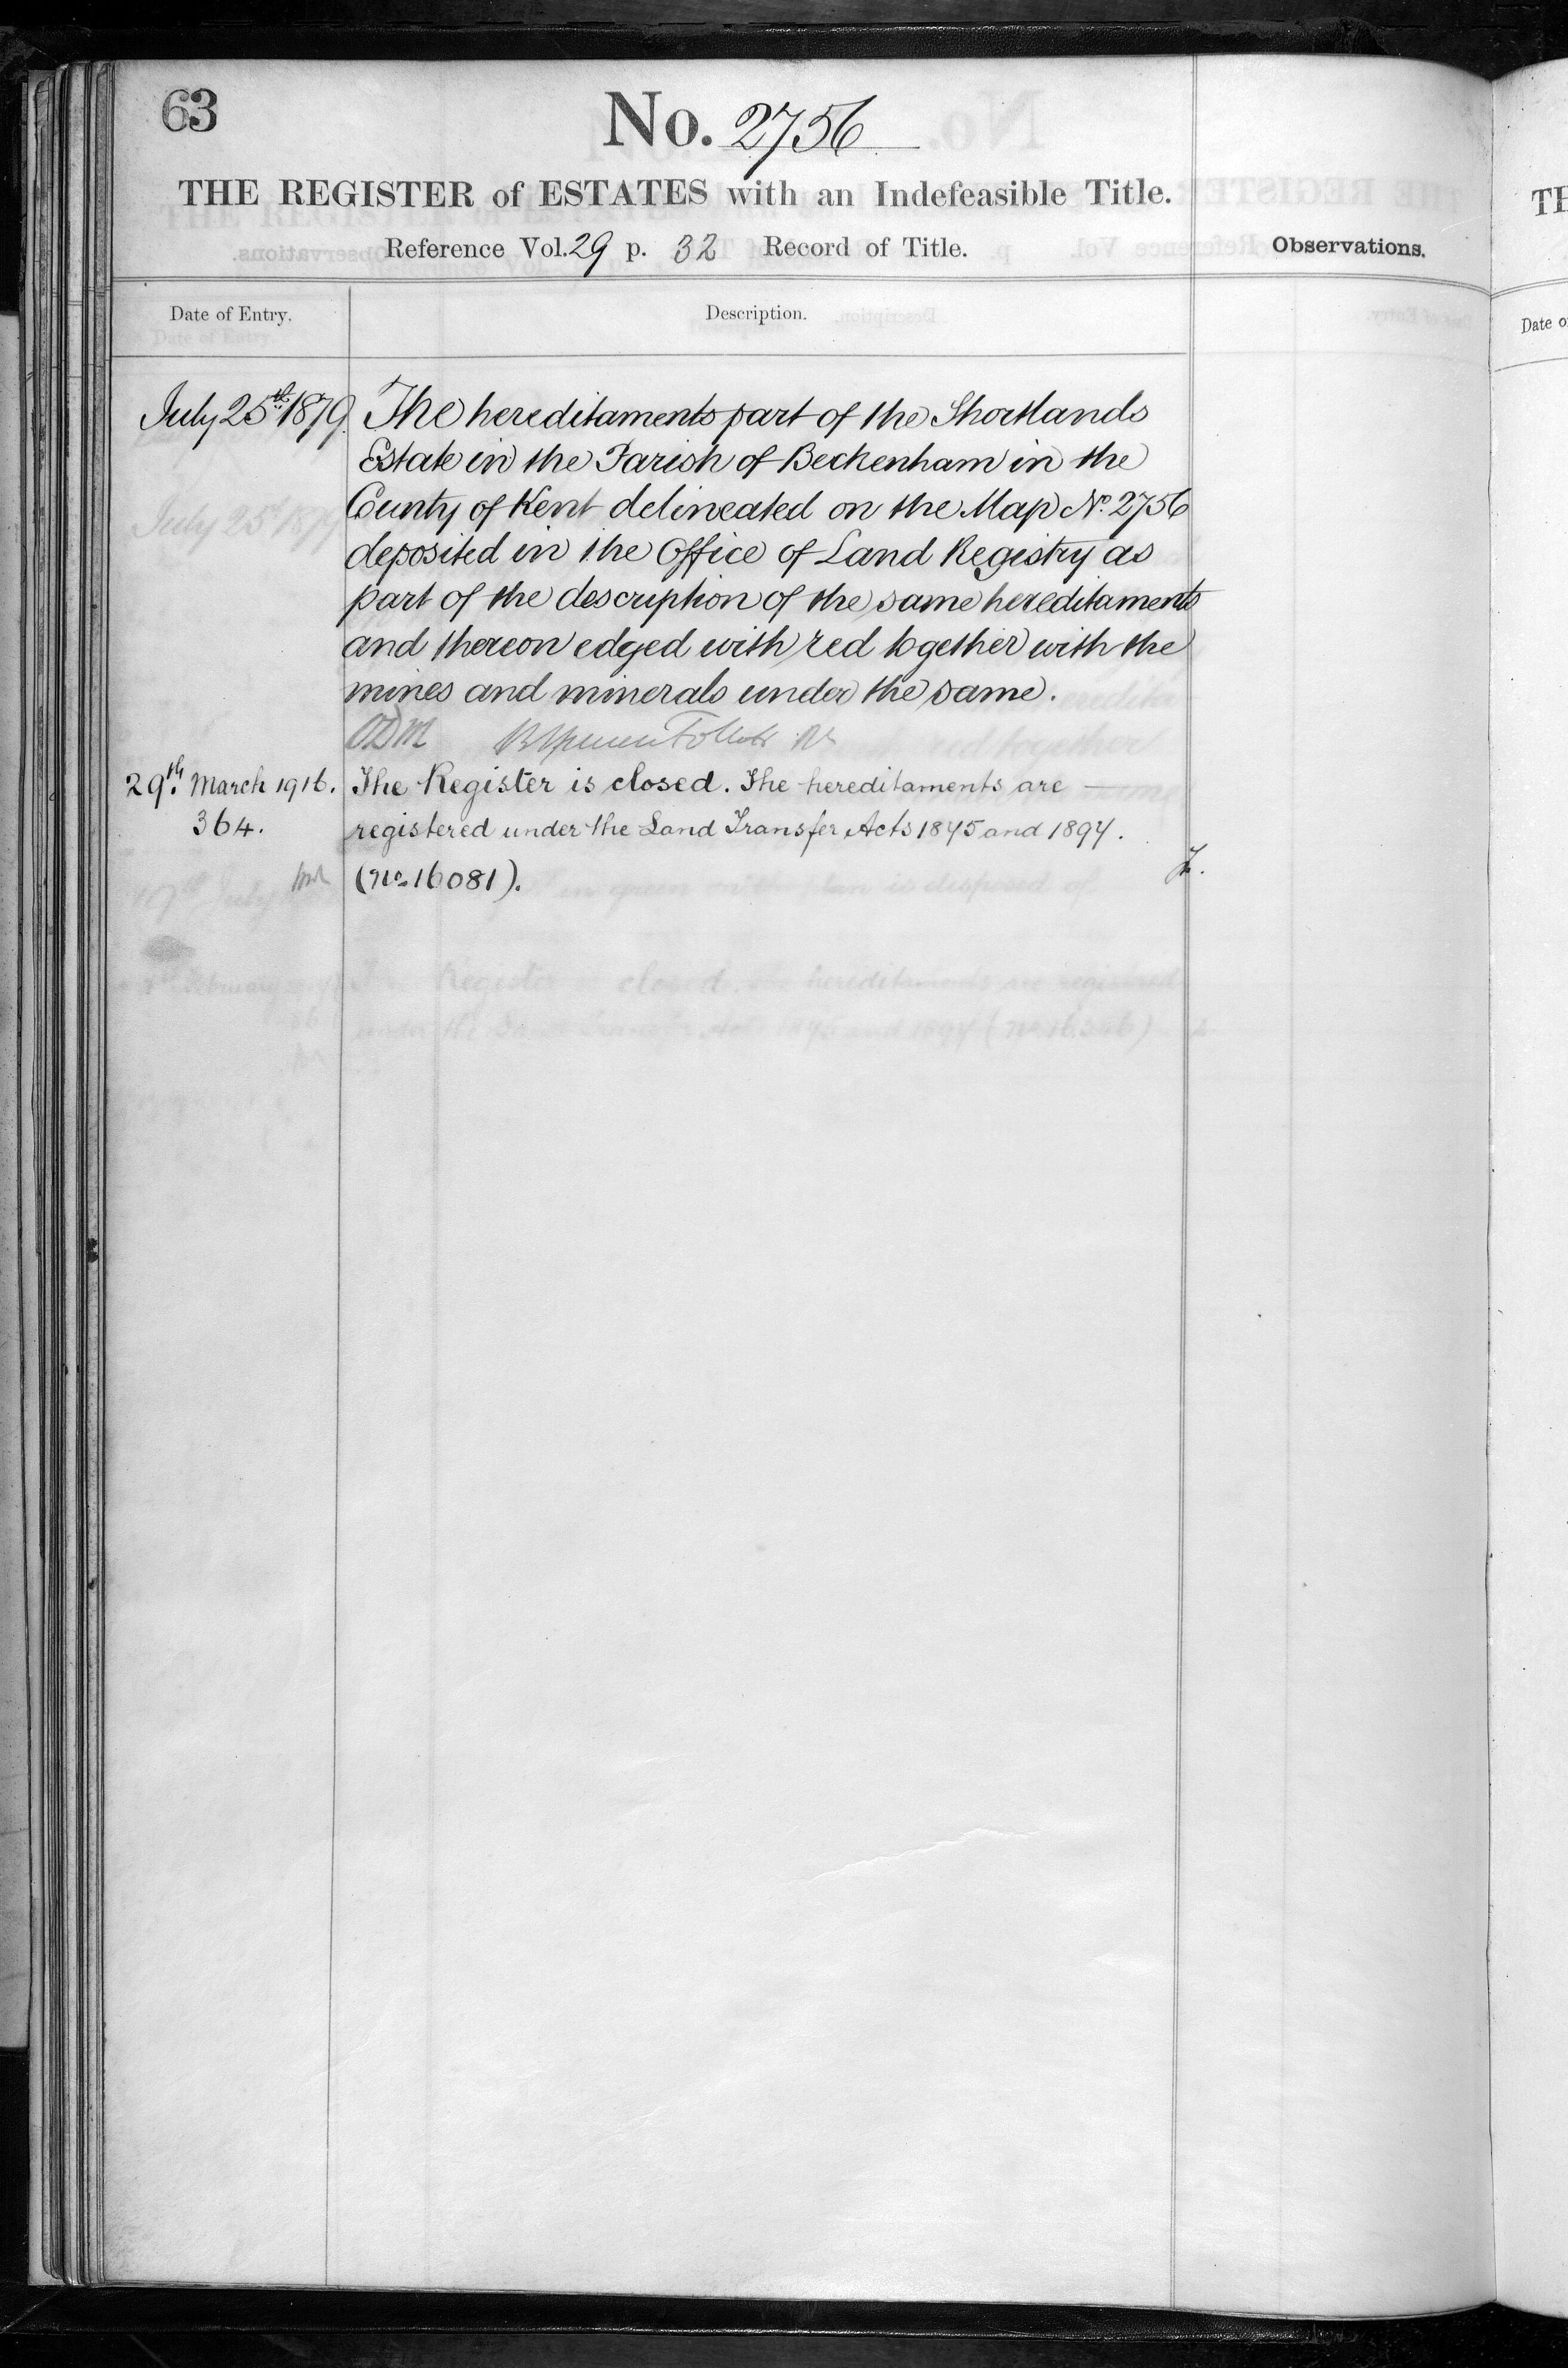 63
No. 2756
THE REGISTER of ESTATES with an Indefeasible Title.
Reference Vol. 29 p. 32 Record of Title.
Observations.
Date of Entry.
Description.
July 25th 1879.
The hereditaments part of the Shortlands
Estate in the Parish of Beckenham in the
County of Kent delineated on the Map No. 2756
deposited in the Office of Land Registry as
part of the description of the same hereditaments
and thereon edged with red together with the
mines and minerals under the same.
29th March 1916.
364.
The Register is closed. The hereditaments are —
registered under the Land Transfer Acts 1875 and 1897.
(No. 16081).
TH
Date o